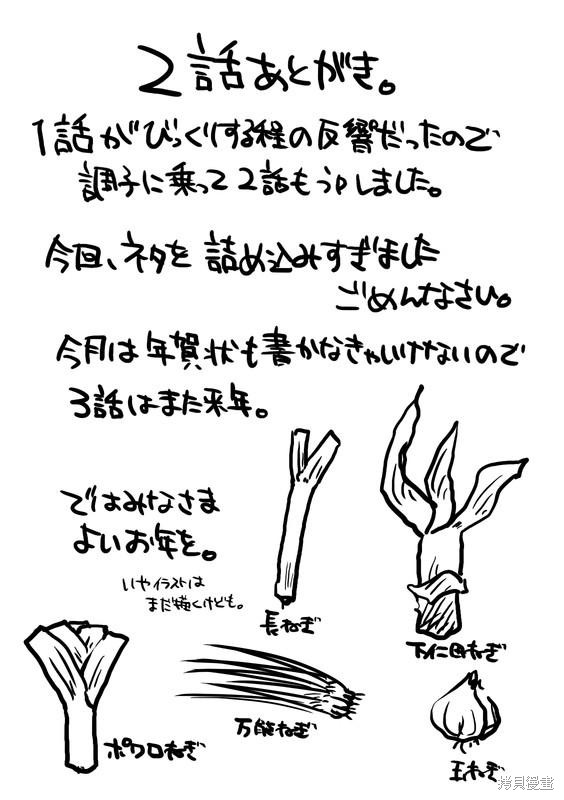 2話あとがき。
1話がびっくりする程の反響だったので
調子に乗って2話もうpしました。
今回、ネタを詰め込みすぎました
ごめんなさい。
今月は年賀状も書かなきゃいけないので
3話はまた来年。
ではみなさま
よいお年を。
いやイラストは
まだ描くけども。
長ねぎ
下仁田ねぎ
ポワロねぎ
万能ねぎ
玉ねぎ
拷貝漫畫